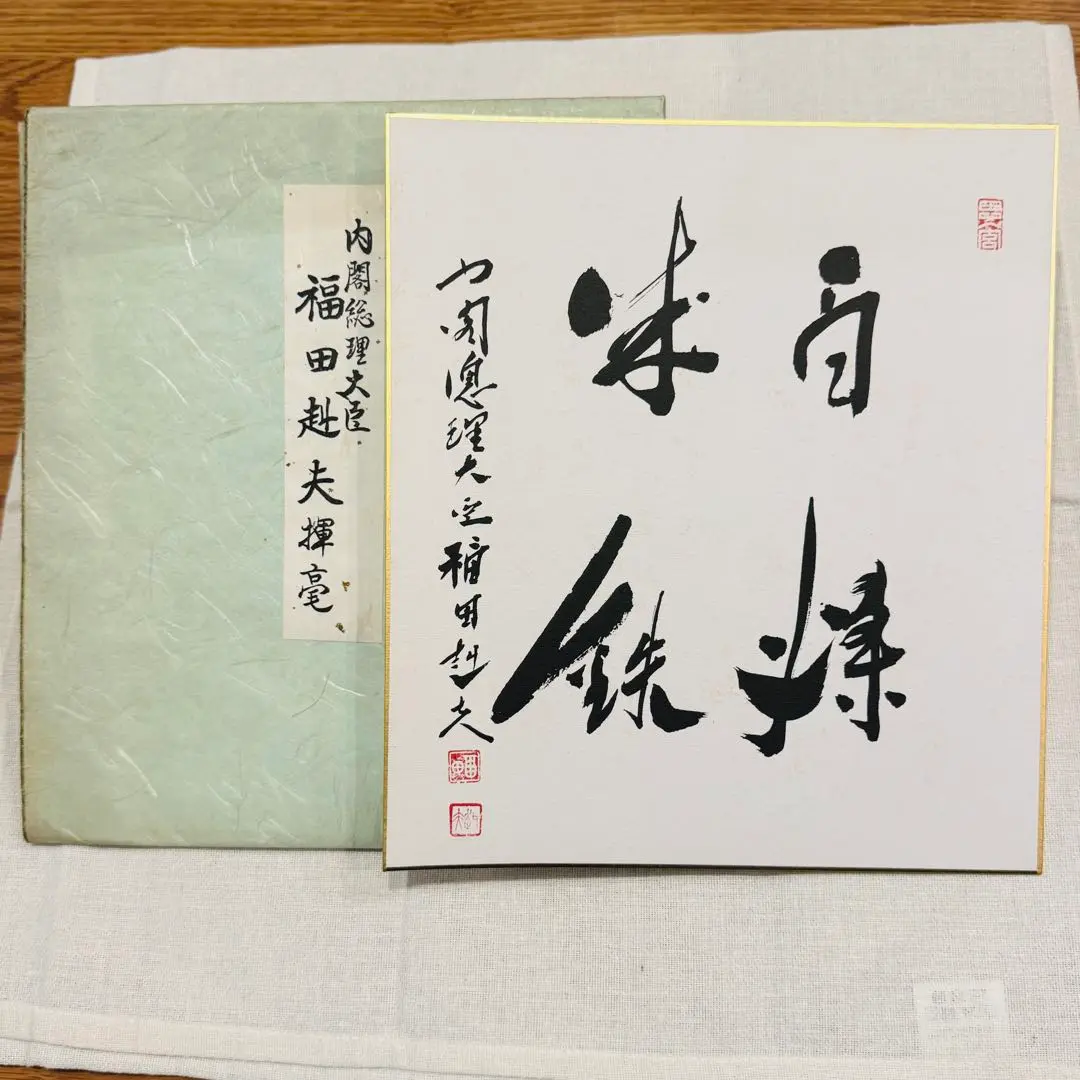 内閣総理大臣
福田赳夫揮毫
百煉
成鉄
内閣総理大臣福田赳夫